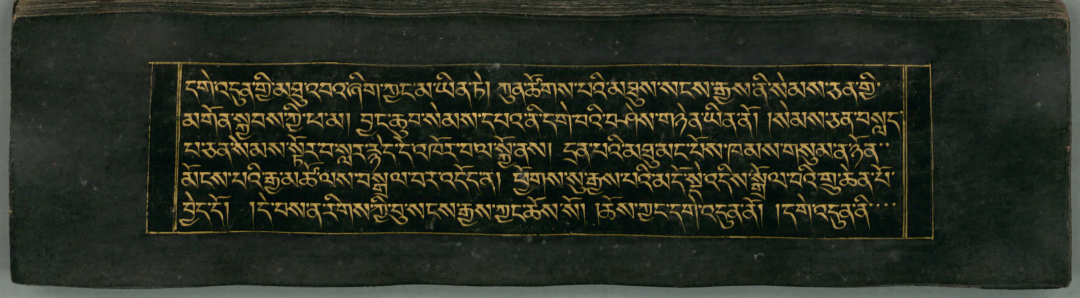 དགེ་འདུན་གྱི་མཐུ་འབའ་ཞིག་ཀྱང་མ་ཡིན་ཏེ། ཀུན་ཚོགས་པའི་མཐུས་སངས་རྒྱས་ནི་སེམས་ཅན་གྱི་
མགོན་སྐྱབས་ཀྱི་ཕ་མ། བྱང་ཆུབ་སེམས་དཔའ་ནི་དགེ་བའི་བཤེས་གཉེན་ཡིན་ནོ། །སེམས་ཅན་བསླད་
པ་ཅན་སེམས་སྟོར་བ་སླར་རྙེད་དེ་འཁོར་བ་ལ་སྐྱོ་ནས། དྲན་པའི་མཐུ་མང་པོས་ཁམས་གསུམ་ན་ཉོན་
མོངས་པའི་རྒྱ་མཚོ་ལས་བསྒྲལ་བར་འདོད་ན། ཕྱོགས་སུ་རྒྱས་པའི་མདོ་སྡེ་འདིས་སྒྲོལ་བའི་གྲུ་ཆེན་པོ་
བྱེད་དོ། །དེ་བས་ན་རིགས་ཀྱི་བུ་སངས་རྒྱས་ཀྱང་ཆོས་སོ། །ཆོས་ཀྱང་དགེ་འདུན་ནོ། །དགེ་འདུན་ནི་